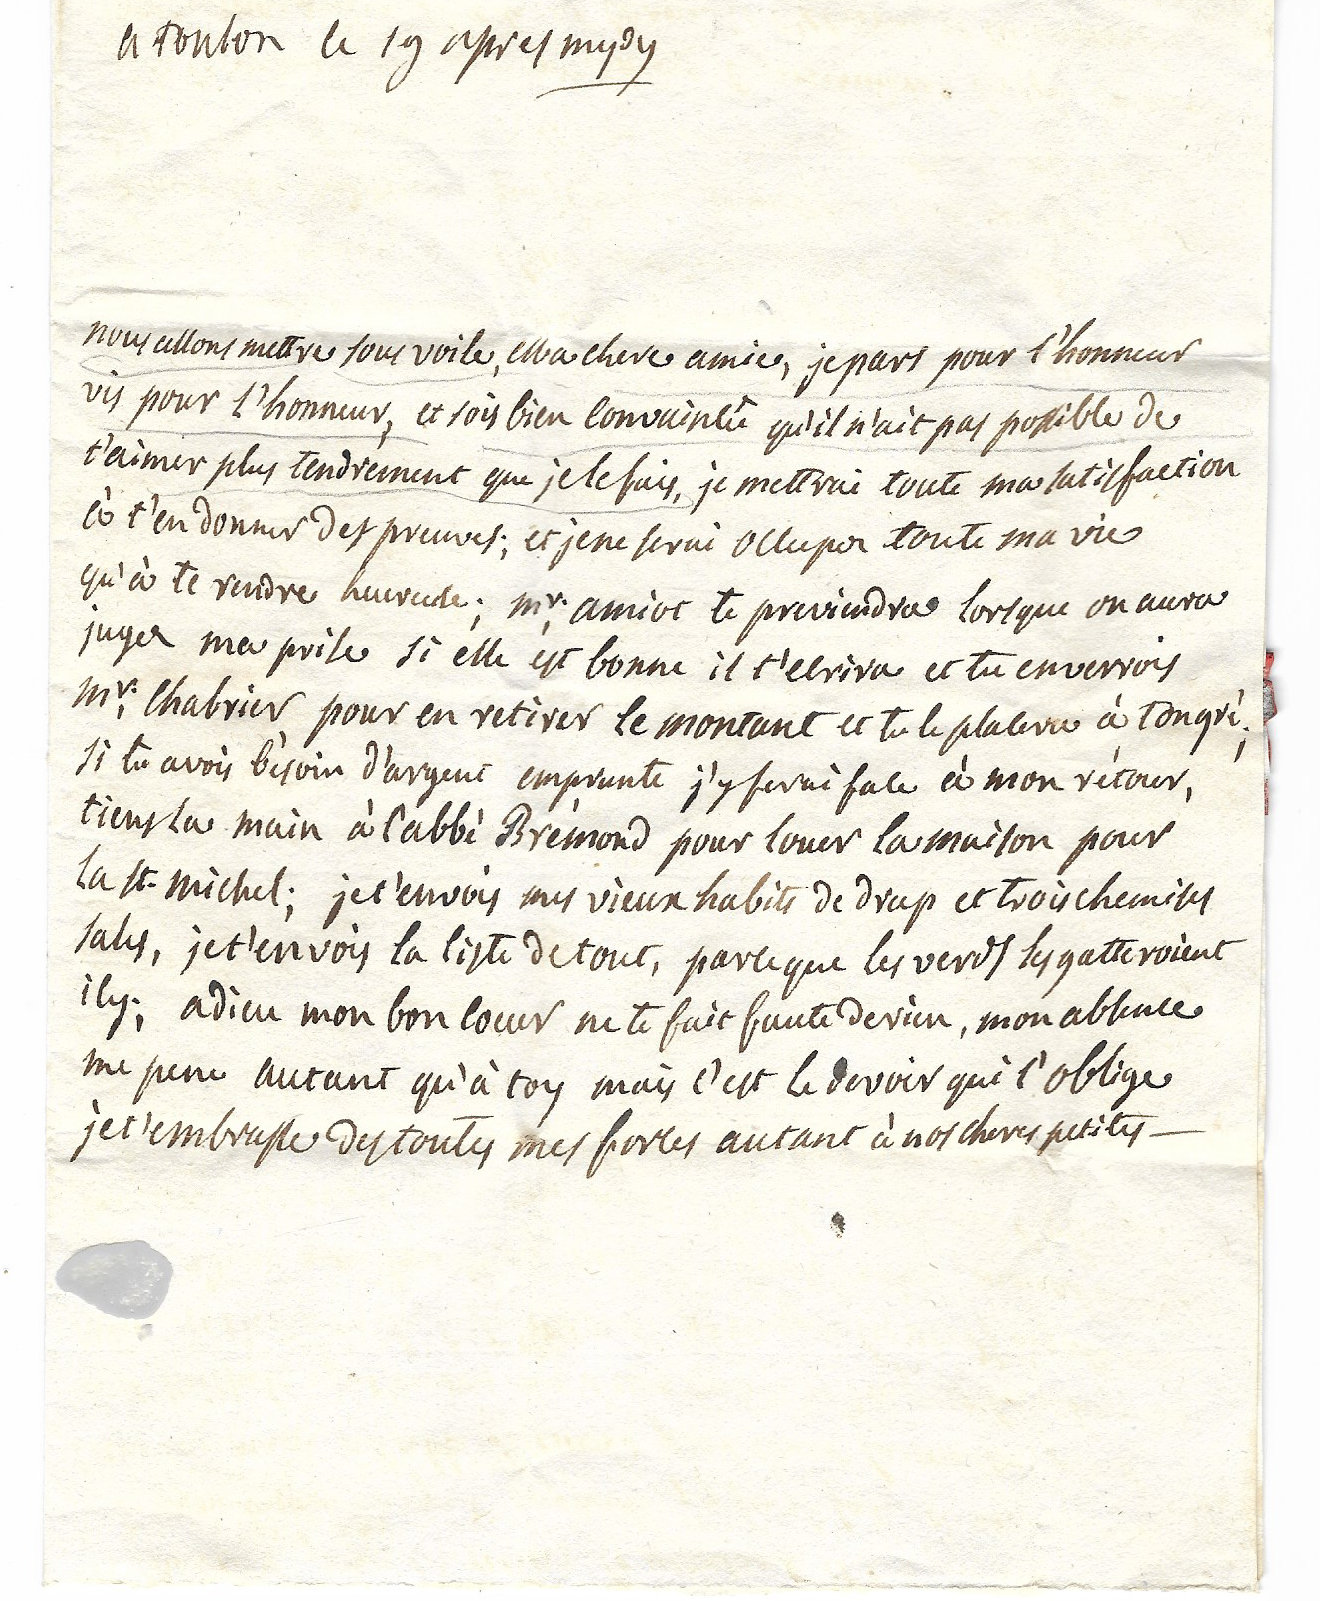 a toulon le 19 apres mydy
nous allons mettre sous voile, Ma chere amie, je pars pour l'honneur
vis pour l'honneur, et sois bien convaincüe qu'il n'ait pas possible de
t'aimer plus tendrement que je le fais, je mettrai toute ma satisfaction
à t'en donner des preuves; et je ne serai occuper toute ma vie
qu'à te rendre heureuse; mr. amiot te previendra lorsque on aura
juger ma prise si elle est bonne il t'ecrira et tu enverrois
mr. Chabrier pour en retirer le montant et tu le placera à ton gré;
si tu avois bésoin d'argent emprunte j'y ferai face à mon rétour,
tiens la main à l'abbé Brémond pour louer la maison pour
la st. michel; je t'envois mes vieux habits de drap et trois chemises
sales, je t'envois la liste de tout, parceque les verds les gatteroient
icy; adieu mon bon coeur ne te fait faute de rien, mon absence
me pene autant qu'à toy mais c'est le devoir qui l'oblige
je t'embrasse des toutes mes forces autant à nos cheres petites —